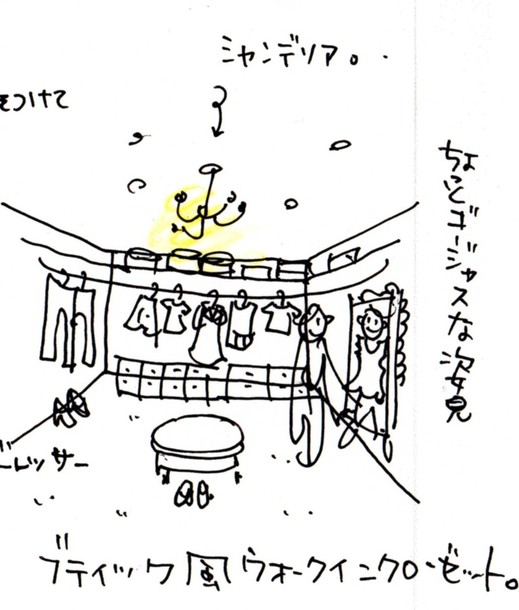 シャンデリア。
をつけて
ちょっとゴージャスな姿見
ドレッサー
ブティック風ウォークインクローゼット。